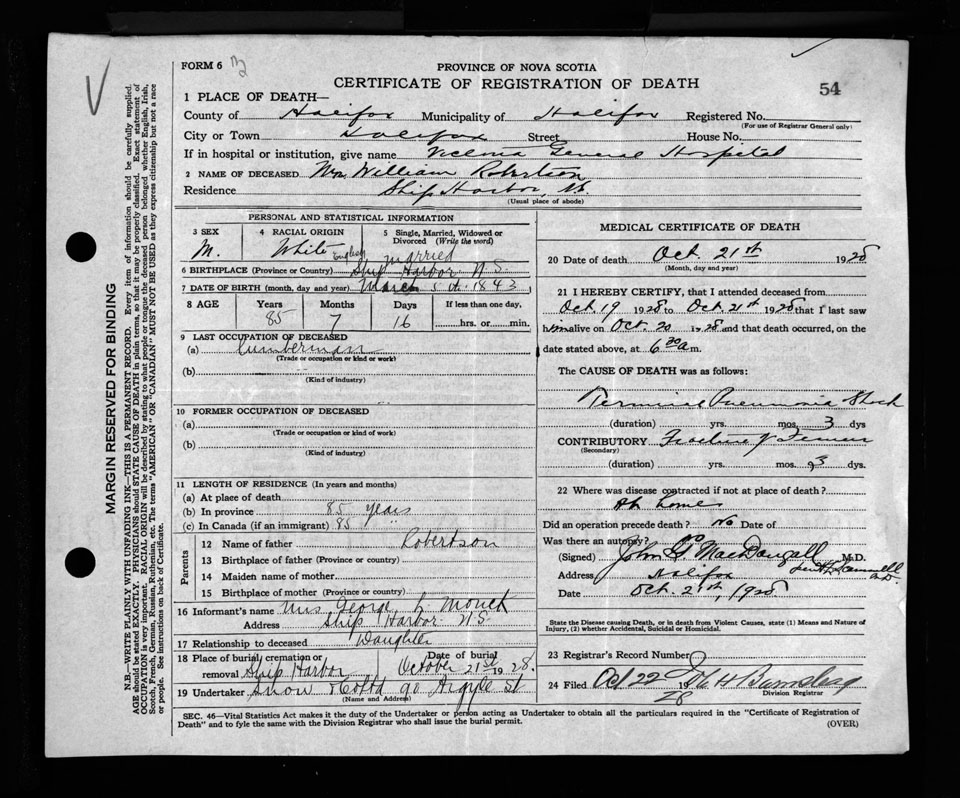 FORM 6
PROVINCE OF NOVA SCOTIA
CERTIFICATE OF REGISTRATION OF DEATH
54
1 PLACE OF DEATH—
County of Halifax Municipality of Halifax Registered No.
(For use of Registrar General only)
City or Town Halifax Street House No.
If in hospital or institution, give name Victoria General Hospital
2 NAME OF DECEASED Wm William Robertson
Residence Ship Harbor, N.S.
(Usual place of abode)
PERSONAL AND STATISTICAL INFORMATION
3 SEX 4 RACIAL ORIGIN 5 Single, Married, Widowed or Divorced (Write the word)
M. White English married
6 BIRTHPLACE (Province or Country) Ship Harbor N S
7 DATE OF BIRTH (month, day and year) March 5th 1843
8 AGE Years Months Days If less than one day,
85 7 16 hrs. or min.
9 LAST OCCUPATION OF DECEASED
(a) Lumberman
(Trade or occupation or kind or work)
(b)
(Kind of industry)
10 FORMER OCCUPATION OF DECEASED
(a)
(Trade or occupation or kind of work)
(b)
(Kind of industry)
11 LENGTH OF RESIDENCE (In years and months)
(a) At place of death
(b) In province 85 years
(c) In Canada (if an immigrant) 85 "
Parents
12 Name of father Robertson
13 Birthplace of father (Province or country)
14 Maiden name of mother
15 Birthplace of mother (Province or country)
16 Informant's name Mrs George L
Address Ship Harbor N S
17 Relationship to deceased Daughter
18 Place of burial, cremation or removal Ship Harbor Date of burial October 21st 1928.
19 Undertaker Snow & Co Ltd 90 Argyle St
(Name and Address)
MEDICAL CERTIFICATE OF DEATH
20 Date of death Oct. 21st 1928
(Month, day and year)
21 I HEREBY CERTIFY, that I attended deceased from
Oct. 19 1928 to Oct. 21st 1928 that I last saw
him alive on Oct. 20 1928 and that death occurred, on the
date stated above, at 6 30 a m.
The CAUSE OF DEATH was as follows:
Terminal Pneumonia Shock
(duration) yrs. mos. 3 dys
CONTRIBUTORY Fracture of Femur
(Secondary)
(duration) yrs. mos. 3 dys.
22 Where was disease contracted if not at place of death?
At home
Did an operation precede death? No Date of
Was there an autopsy? No
(Signed) John G MacDougall M.D.
Address Halifax
Date Oct. 21st, 1928
State the Disease causing Death, or in death from Violent Causes, state (1) Means and Nature of
Injury, (2) whether Accidental, Suicidal or Homicidal.
23 Registrar's Record Number
24 Filed Oct 22 1928
Division Registrar
SEC. 46—Vital Statistics Act makes it the duty of the Undertaker or person acting as Undertaker to obtain all the particulars required in the "Certificate of Registration of
Death" and to fyle the same with the Division Registrar who shall issue the burial permit.
(OVER)
MARGIN RESERVED FOR BINDING
N.B.—WRITE PLAINLY WITH UNFADING INK—THIS IS A PERMANENT RECORD. Every item of information should be carefully supplied.
AGE should be stated EXACTLY. PHYSICIANS should STATE CAUSE OF DEATH in plain terms, so that it may be properly classified. Exact statement of
OCCUPATION is very important. RACIAL ORIGIN will be described by stating to what people or tongue the deceased person belonged whether English, Irish,
Scotch, French, German, Russian, Ruthenian, etc. The terms "AMERICAN" OR "CANADIAN" MUST NOT BE USED as they express citizenship but not a race
or people. See instructions on back of Certificate.